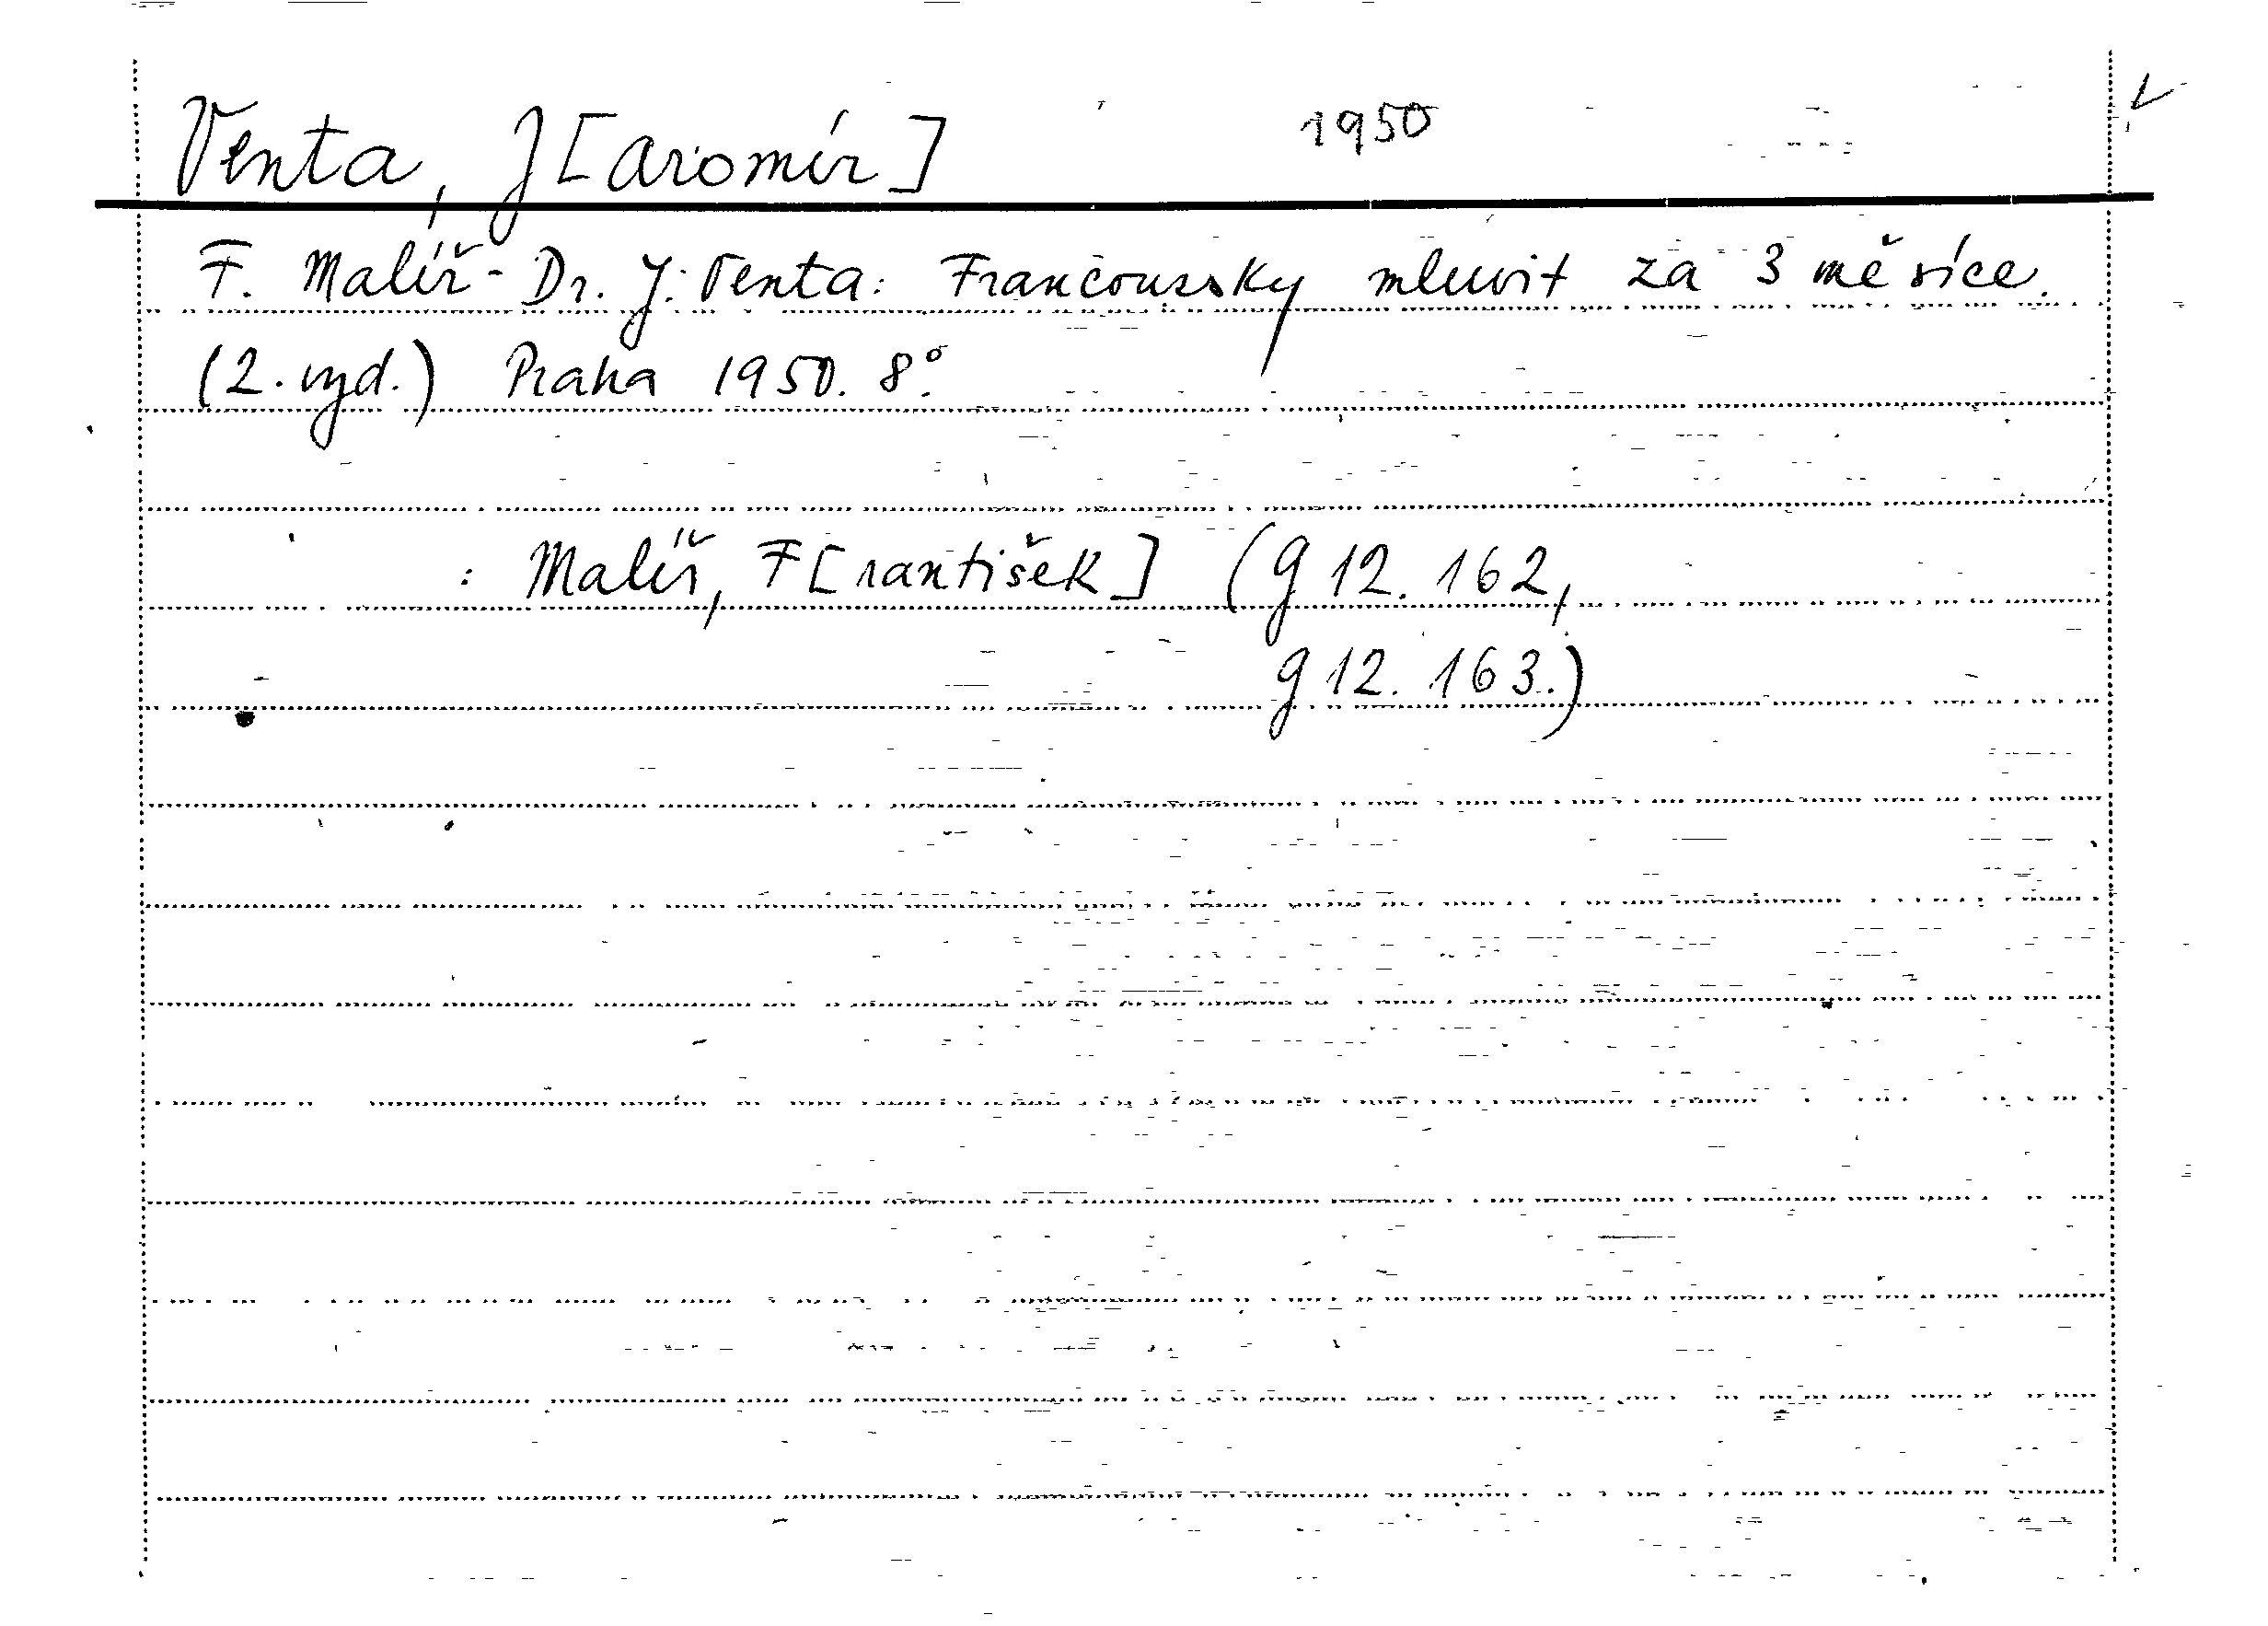 Venta, J[aromír] 1950
F. Malíř - Dr. J. Venta: Francoussky mluvit za 3 měsíce.
(2. vyd.) Praha 1950. 8°.
: Malíř, F[rantišek] (g 12. 162,
g 12. 163.)